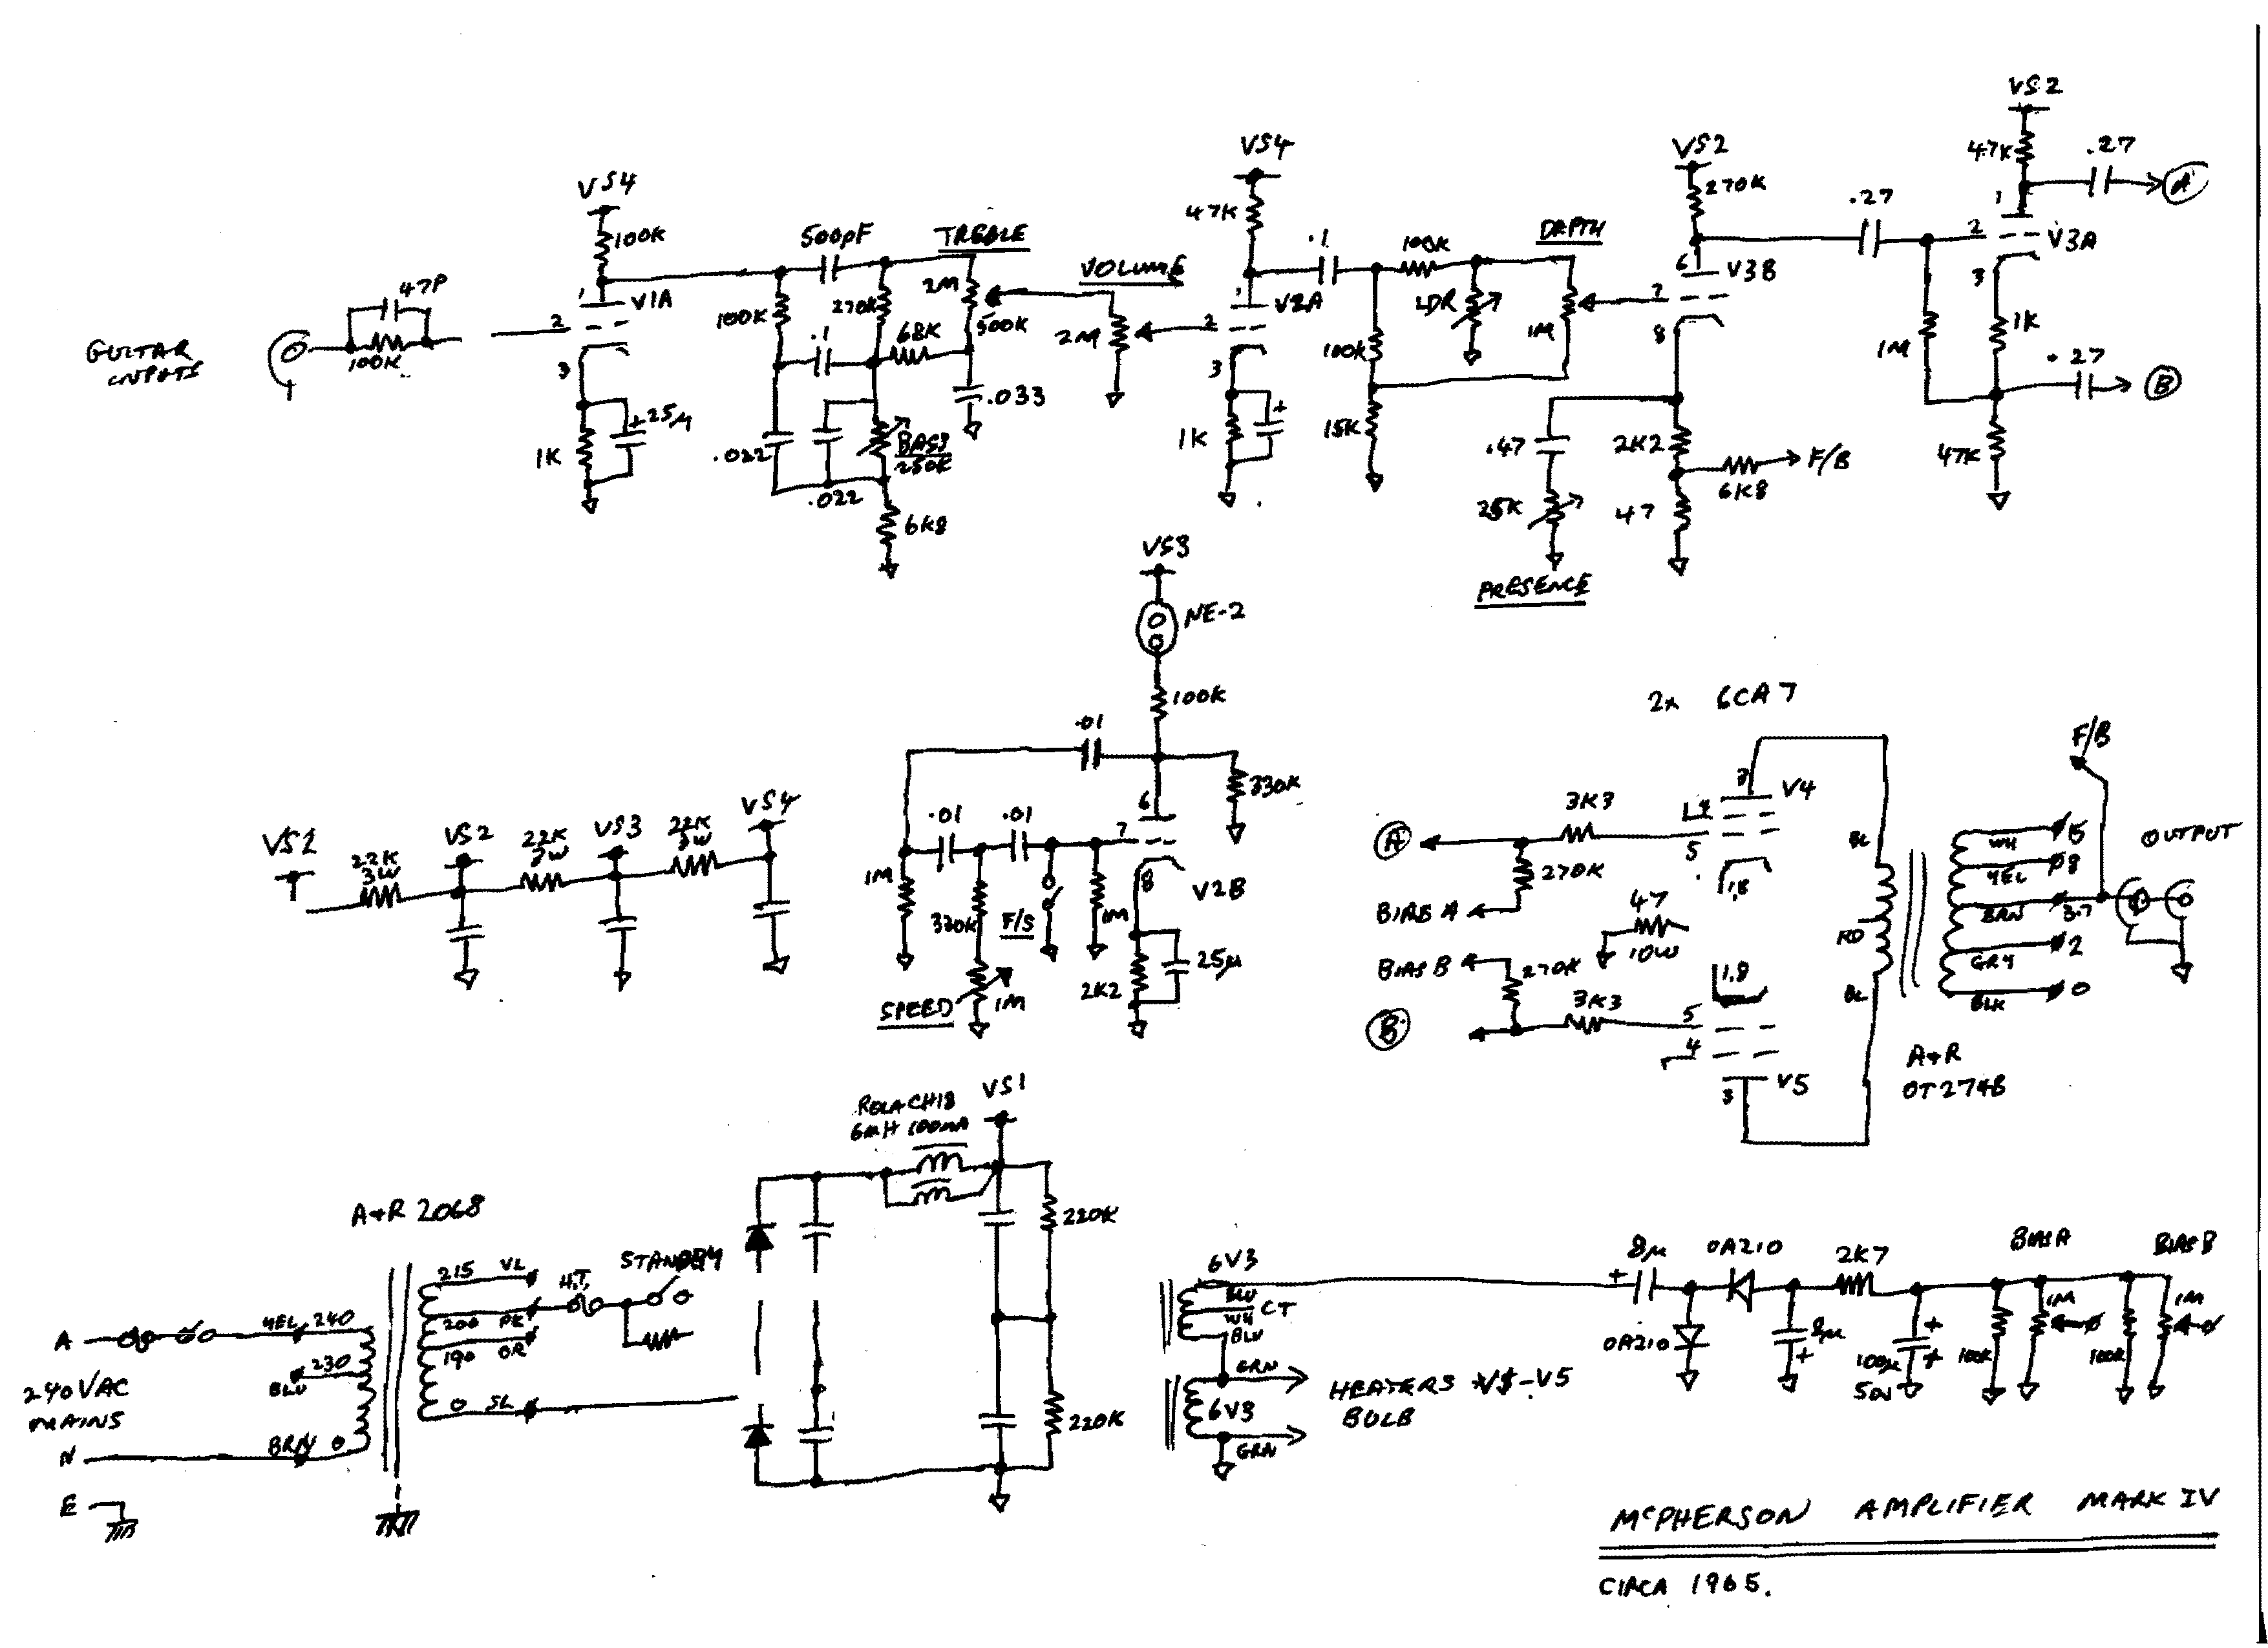 GUITAR
INPUTS
47P
100K
VS4
100K
V1A
1
2
3
1K
+25μ
500pF
100K
270K
.1
68K
TREBLE
2M
500K
.022
.022
BASS
250K
6K8
.033
VOLUME
2M
VS4
47K
V2A
1
2
3
1K
+
.1
100K
100K
15K
LDR
DEPTH
1M
VS2
270K
V3B
6
7
8
.47
25K
PRESENCE
2K2
47
6K8
F/B
.27
1M
VS2
47K
1
2
3
V3A
1K
47K
.27
A
.27
B
VS3
NE-2
100K
.01
330K
.01
.01
6
7
8
V2B
1M
330K
F/S
1M
SPEED
1M
2K2
25μ
VS1
22K
3W
VS2
22K
3W
VS3
22K
3W
VS4
2x 6CA7
A
3K3
270K
BIAS A
BIAS B
270K
3K3
B
47
10W
3
V4
4
5
1.8
1.8
5
4
3
V5
BL
RD
BL
WH
YEL
BRN
GRY
BLK
15
8
3.7
2
0
F/B
OUTPUT
A+R
OT2748
A+R 2068
A
240VAC
MAINS
N
E
YEL 240
230
BLU
BRN 0
215 VL
200 PK
190 OR
0 SL
H.T.
STANDBY
ROLA CH18
6mH 100mA
VS1
220K
220K
6V3
BLU
WH CT
BLU
GRN
6V3
GRN
HEATERS V1-V5
BULB
8μ
+
OA210
OA210
2K7
8μ
+
100μ
50V
+
+
BIAS A
100K
1M
BIAS B
100K
1M
McPHERSON AMPLIFIER MARK IV
CIRCA 1965.